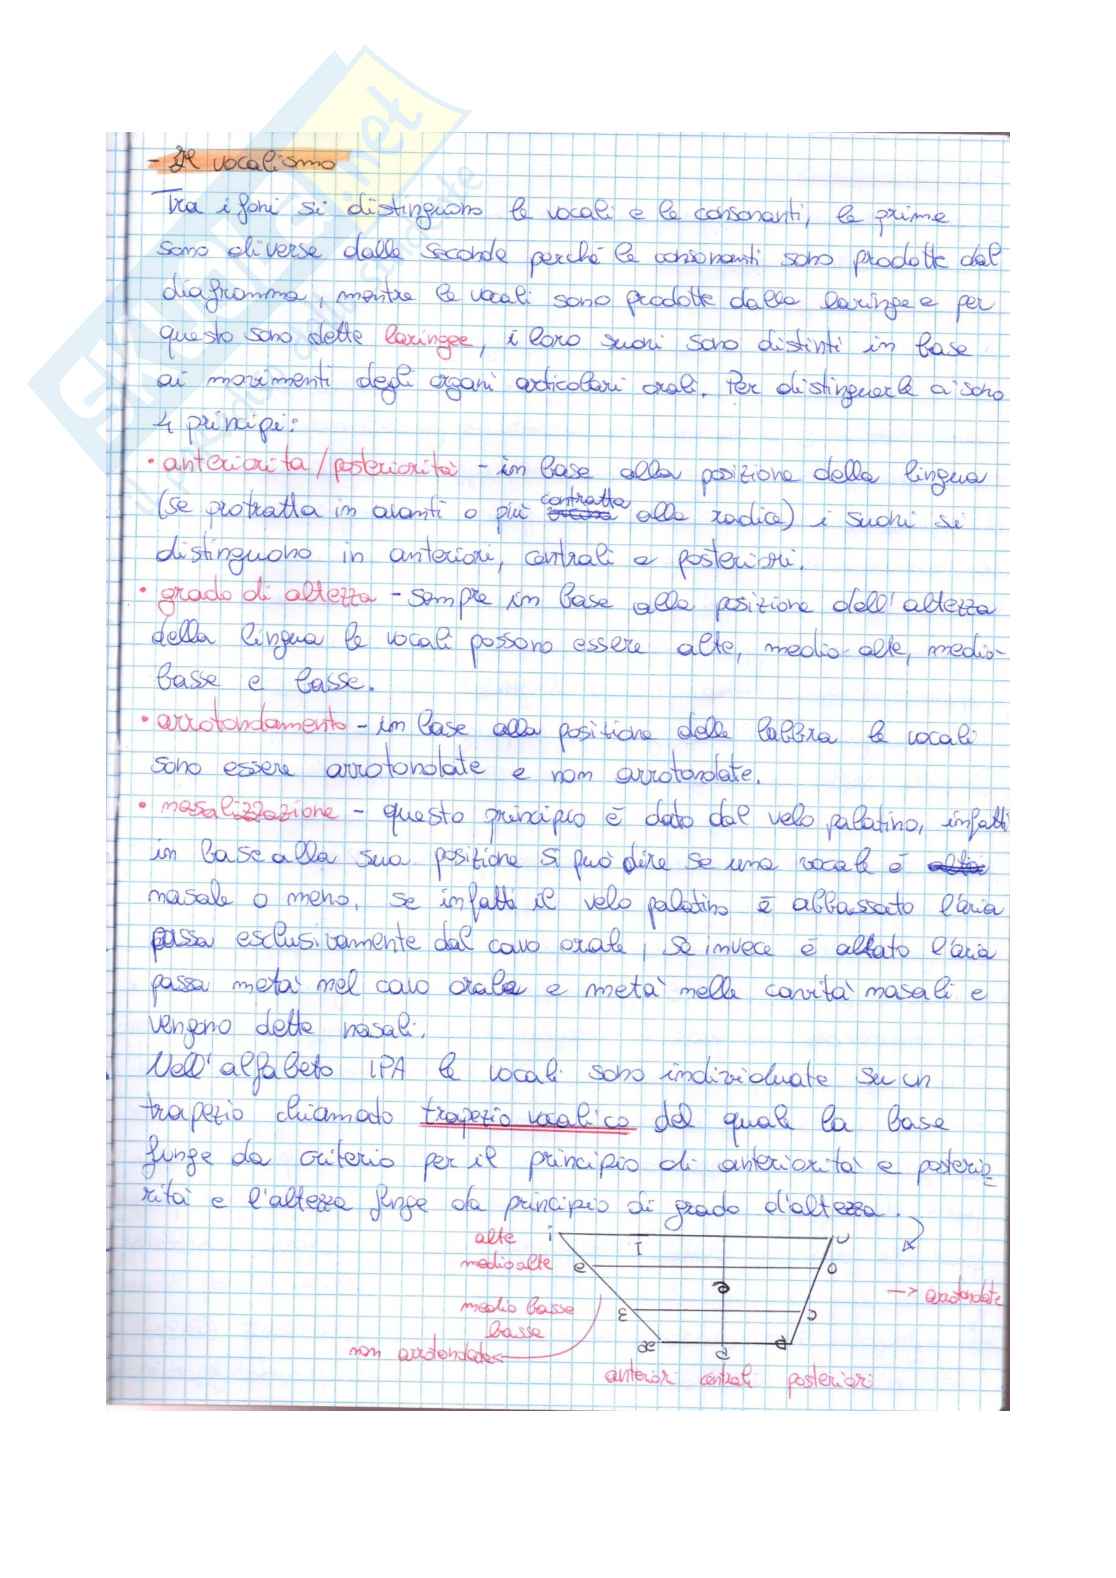 - Il vocalismo
Tra i foni si distinguono le vocali e le consonanti, le prime
sono diverse dalle seconde perché le consonanti sono prodotte dal
diaframma, mentre le vocali sono prodotte dalla laringe e per
questo sono dette laringee, i loro suoni sono distinti in base
ai movimenti degli organi articolari orali. Per distinguerle ci sono
4 principi:
• anteriorità/posteriorità - in base alla posizione della lingua
(se protratta in avanti o più contratta alla radice) i suoni si
distinguono in anteriori, centrali e posteriori.
• grado di altezza - sempre in base alla posizione dell'altezza
della lingua le vocali possono essere alte, medio-alte, medio-
basse e basse.
• arrotondamento - in base alla posizione delle labbra le vocali
sono essere arrotondate e non arrotondate.
• nasalizzazione - questo principio è dato dal velo palatino, infatti
in base alla sua posizione si può dire se una vocale è
nasale o meno, se infatti il velo palatino è abbassato l'aria
passa esclusivamente dal cavo orale, se invece è alzato l'aria
passa metà nel cavo orale e metà nelle cavità nasali e
vengono dette nasali.
Nell'alfabeto IPA le vocali sono individuate su un
trapezio chiamato trapezio vocalico del quale la base
funge da criterio per il principio di anteriorità e posterio
rità e l'altezza funge da principio di grado d'altezza.
alte i I u
medio alte e o
ə → arrotondate
medio basse ε ɔ
basse
non arrotondate æ
anteriori centrali posteriori